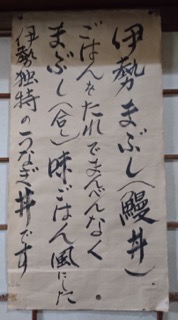 伊勢まぶし(鰻丼)
ごはんをたれでまんべんなく
まぶし(合し)味ごはん風にした
伊勢独特のうなぎ丼です